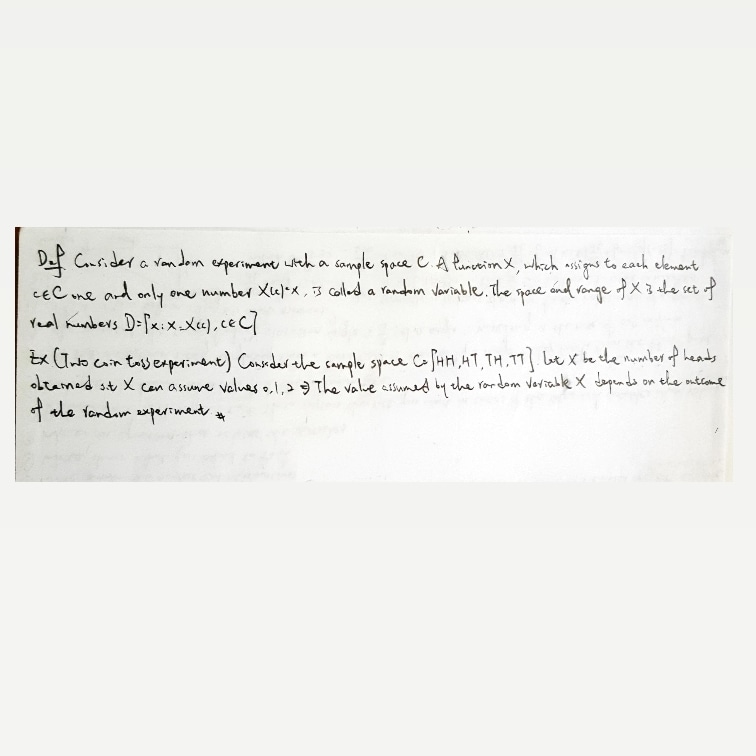 Def Consider a random experiment with a sample space C. A function X, which assigns to each element
c∈C one and only one number X(c)=x, is called a random variable. The space and range of X is the set of
real numbers D={x: x=X(c), c∈C}
Ex (Two coin toss experiment) Consider the sample space C={HH,HT,TH,TT}. Let X be the number of heads
obtained s.t X can assume values 0,1,2 ⇒ The value assumed by the random variable X depends on the outcome
of the random experiment #